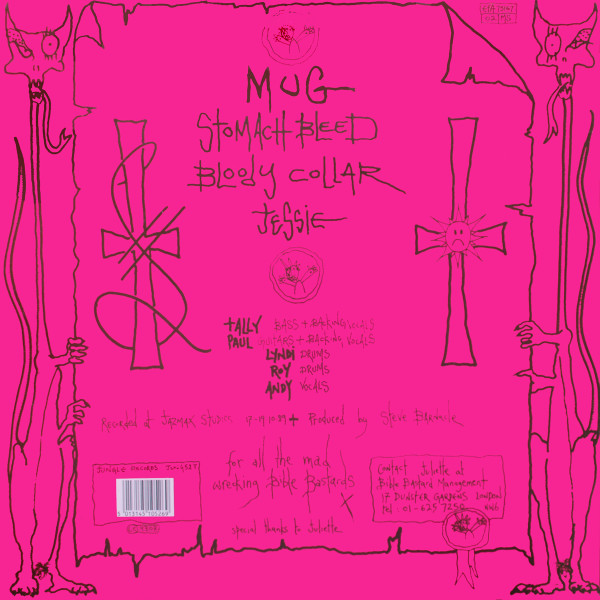 MUG
STOMACH BLEED
BLOODY COLLAR
JESSIE
TALLY BASS + BACKING VOCALS
PAUL GUITARS + BACKING VOCALS
LYNDI DRUMS
ROY DRUMS
ANDY VOCALS
Recorded at JAZMAX STUDIOS 17-19.10.89 + Produced by Steve
for all the mad
wrecking Bible Bastards
X
special thanks to Juliette
JUNGLE RECORDS
5 013145 105269
Contact Juliette at
Bible Bastard Management
17 DUNSTER GARDENS LONDON
tel 01-625 7250 NW6